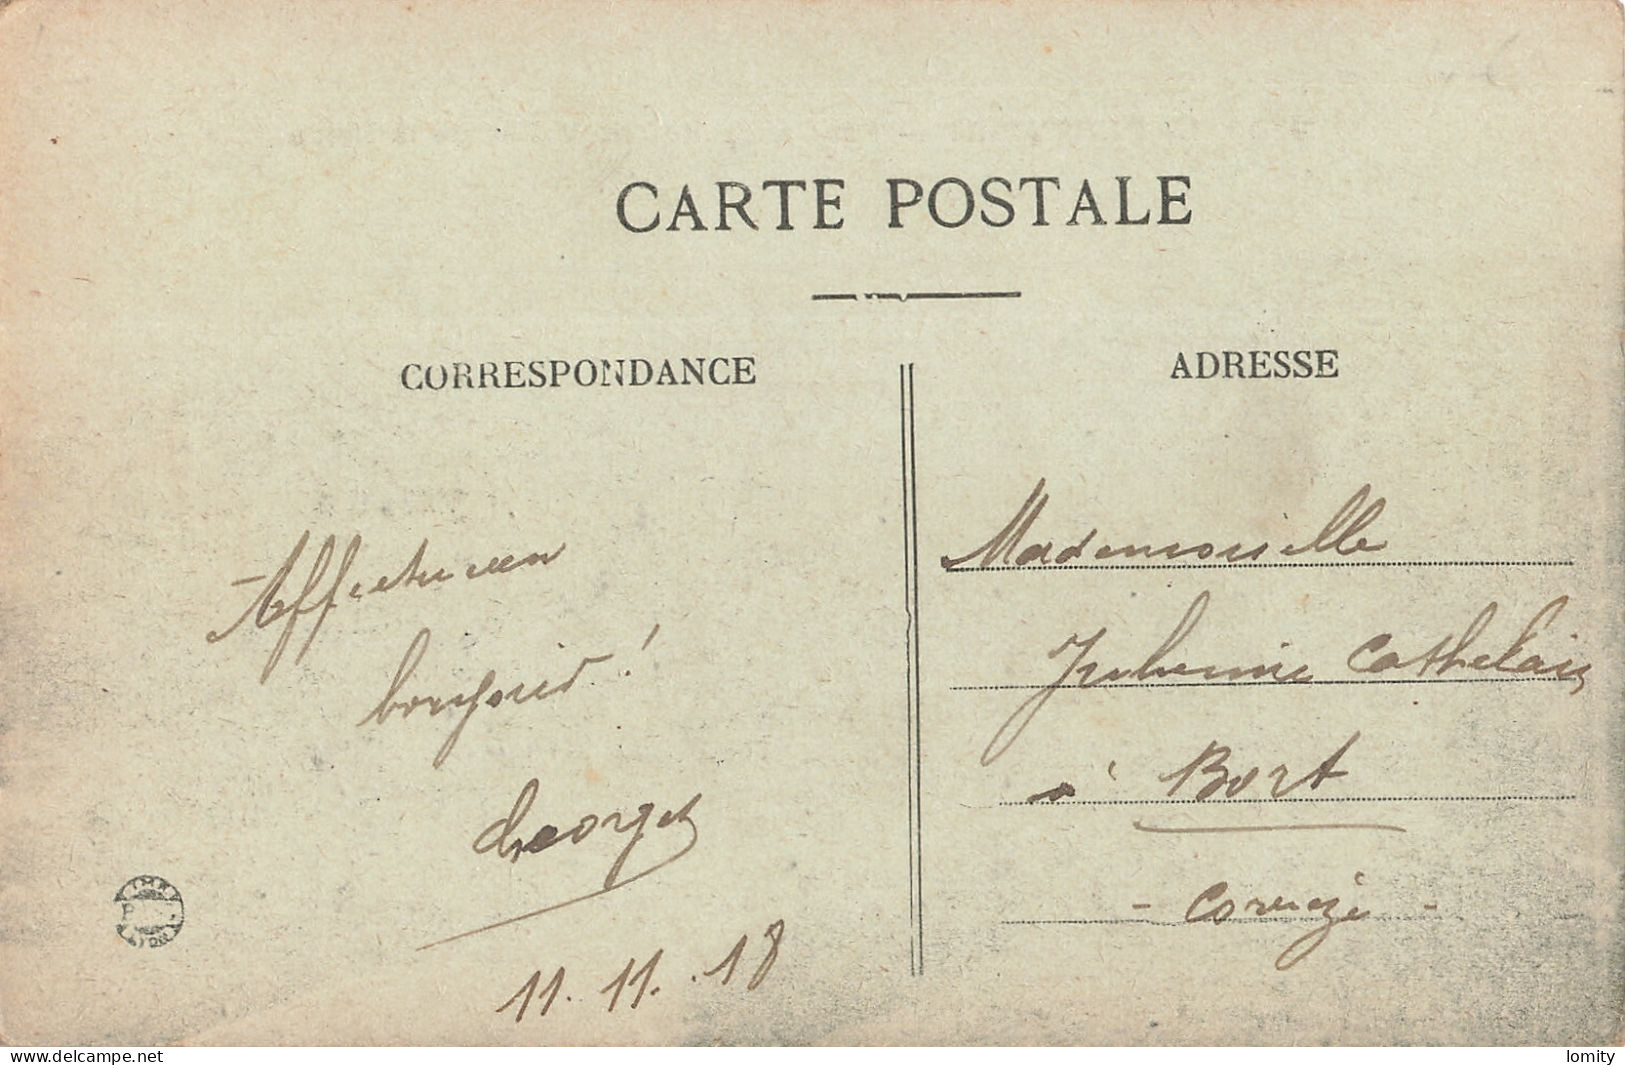 CARTE POSTALE
CORRESPONDANCE
ADRESSE
Affectueux
bonjour !
Georges
11.11.18
Mademoiselle
Cathelain
à Bort
- Corrèze -
delcampe.net
lomity